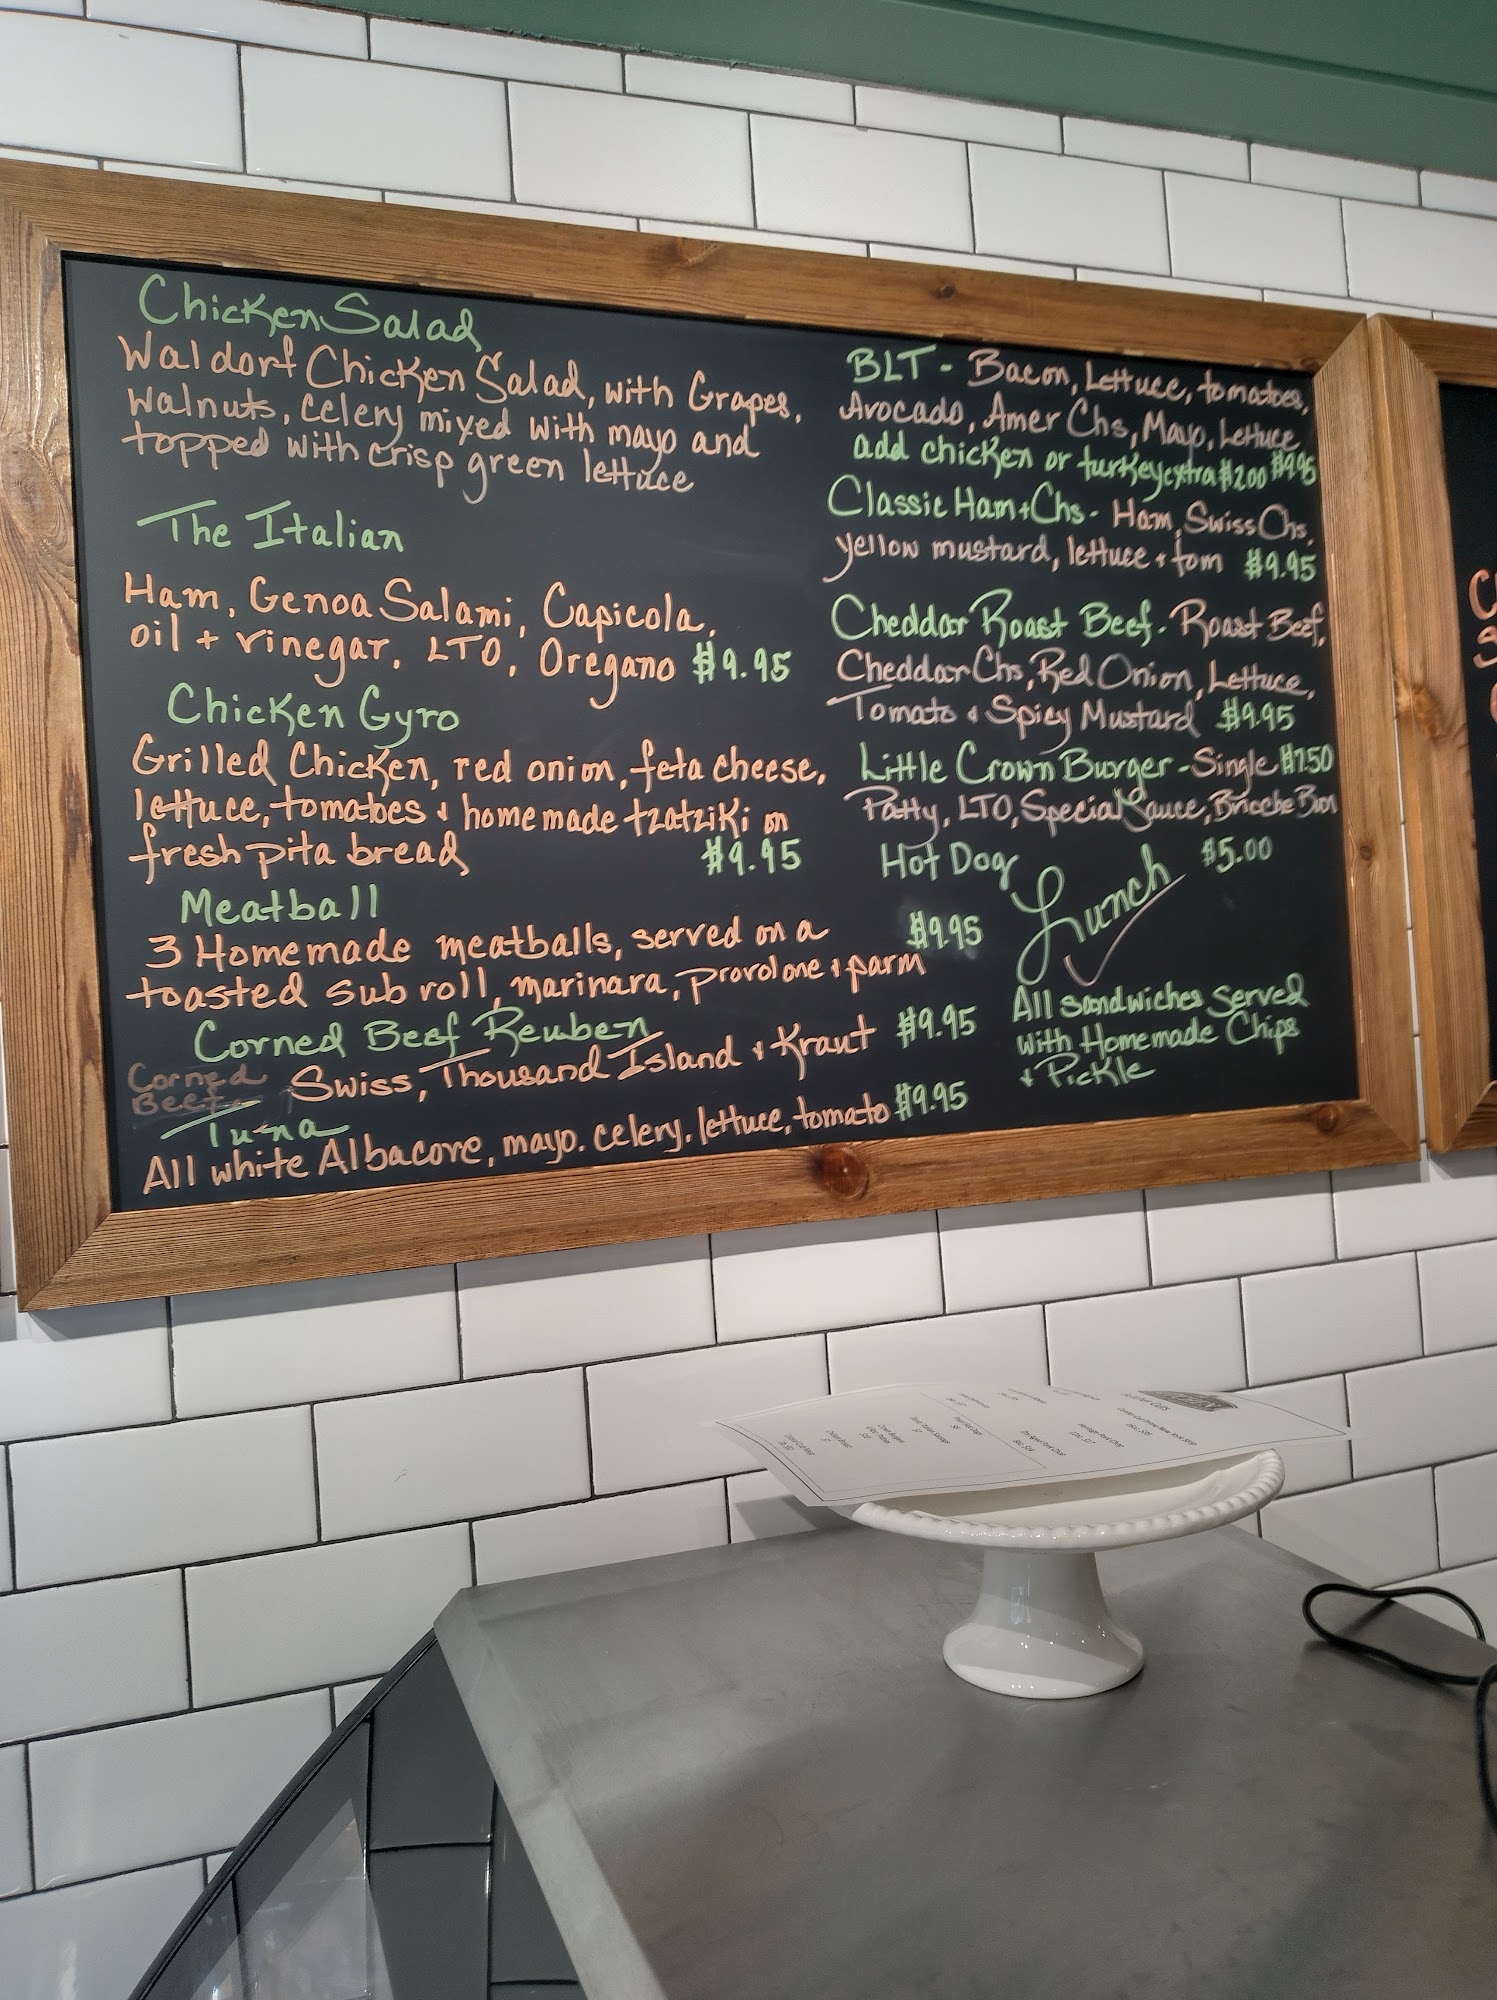 Chicken Salad
Waldorf Chicken Salad, with Grapes,
walnuts, celery mixed with mayo and
topped with crisp green lettuce
The Italian
Ham, Genoa Salami, Capicola,
oil + vinegar, LTO, Oregano $9.95
Chicken Gyro
Grilled Chicken, red onion, feta cheese,
lettuce, tomatoes & homemade tzatziki on
fresh pita bread $9.95
Meatball
3 Homemade meatballs, served on a $9.95
toasted sub roll, marinara, provolone & parm
Corned Beef Reuben
Corned Beef Swiss, Thousand Island & Kraut $9.95
Tuna
All white Albacore, mayo, celery, lettuce, tomato $9.95
BLT - Bacon, Lettuce, tomatoes,
Avocado, Amer Chs, Mayo, Lettuce
add chicken or turkey extra $2.00 $9.95
Classic Ham + Chs - Ham, Swiss Chs,
yellow mustard, lettuce + tom $9.95
Cheddar Roast Beef - Roast Beef,
Cheddar Chs, Red Onion, Lettuce,
Tomato & Spicy Mustard $9.95
Little Crown Burger - Single $7.50
Patty, LTO, Special Sauce, Brioche Bun
Hot Dog $5.00
Lunch
All sandwiches Served
with Homemade Chips
+ Pickle